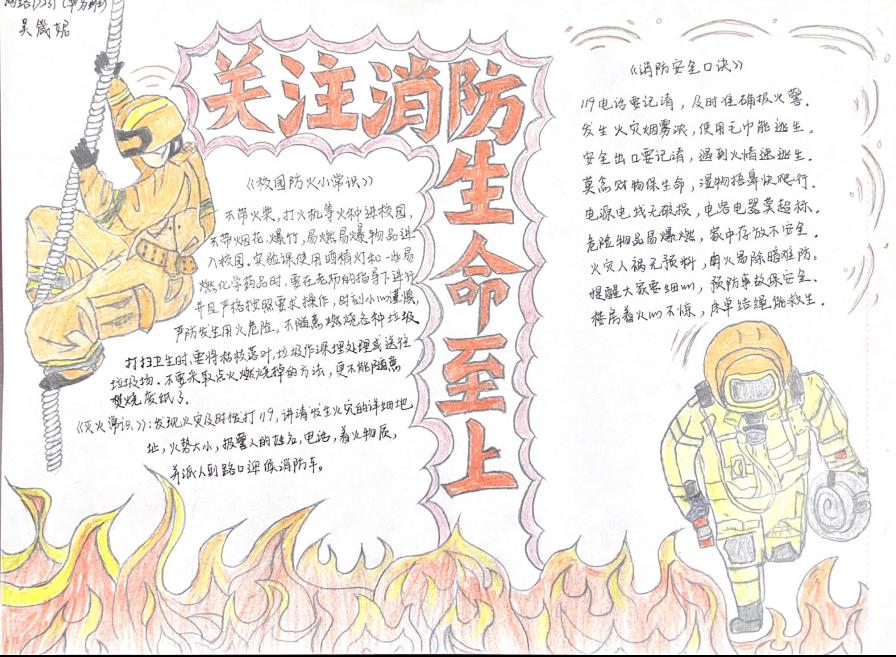 吴箴妮
关注消防
生命至上
《校园防火小常识》
不带火柴,打火机等火种进校园,
不带烟花、爆竹,易燃易爆物品进
入校园.实验课使用酒精灯和一些易
燃化学药品时,要在老师的指导下进行
并且严格按照要求操作,时刻小心谨慎,
严防发生用火危险。不随意燃烧各种垃圾
打扫卫生时,要将枯枝落叶,垃圾作深埋处理或送往
垃圾场.不要采取点火燃烧掉的方法,更不能随意
焚烧废纸了.
《灭火常识》:发现火灾及时拨打119,讲清发生火灾的详细地
址,火势大小,报警人的姓名,电话,着火物质,
并派人到路口迎候消防车。
《消防安全口诀》
119电话要记清,及时准确报火警.
发生火灾烟雾浓,使用毛巾能逃生.
安全出口要记清,遇到火情速逃生.
莫贪财物保生命,湿物捂鼻快爬行.
电源电线无破损,电路电器莫超标.
危险物品易爆燃,家中存放不安全.
火灾人祸无预料,用火易除暗难防。
提醒大家要细心,预防事故保安全.
楼房着火心不慌,床单结绳能救生.